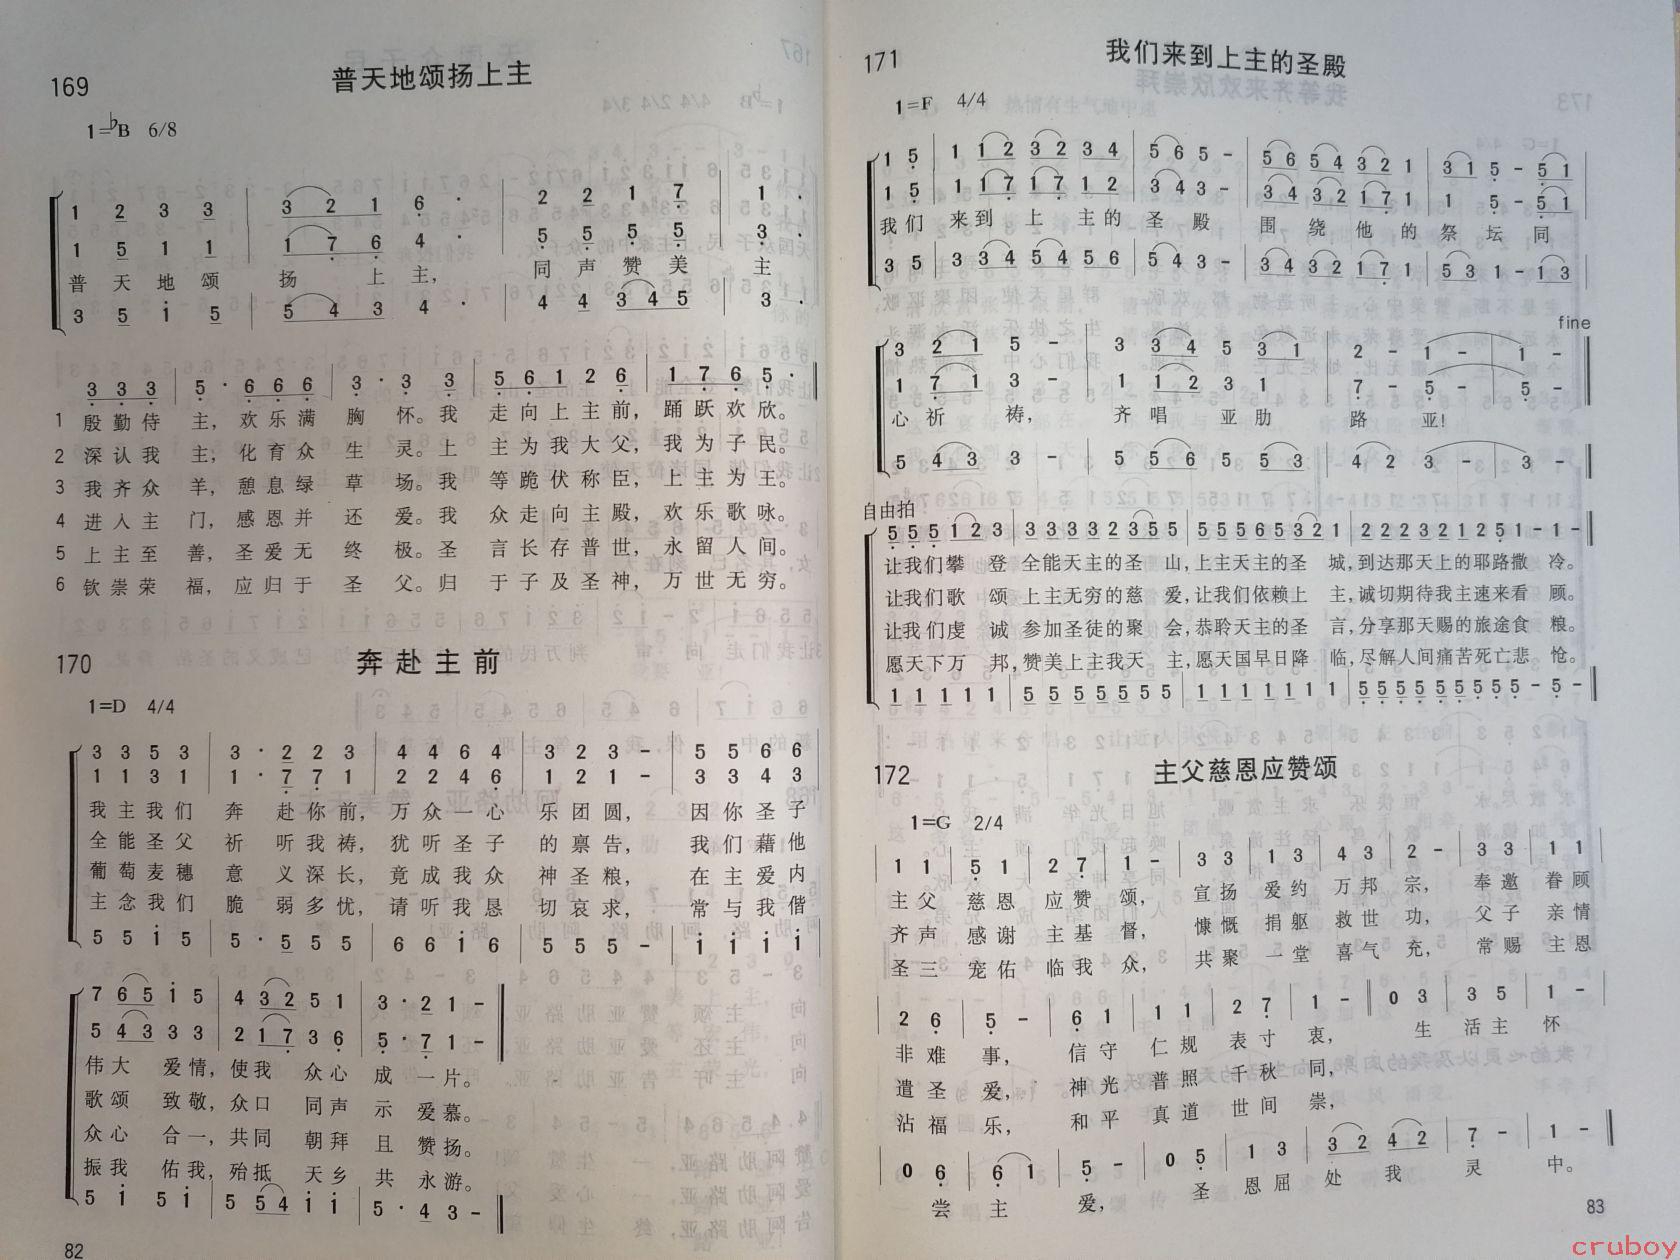 169
普天地颂扬上主
1=♭B 6/8
1 2 3 3 | 3 2 1 6 · | 2 2 1 7 | 1 ·
1 5 1 1 | 1 7 6 4 · | 5 5 5 5 | 3 ·
普天地颂 扬 上主, 同声赞美 主
3 5 i 5 | 5 4 3 4 · | 4 4 3 4 5 | 3 ·
3 3 3 | 5 · 6 6 6 | 3 · 3 3 | 5 6 1 2 6 | 1 7 6 5 ·
1 殷勤侍主, 欢乐满胸怀。我走向上主前, 踊跃欢欣。
2 深认我主, 化育众生灵。上主为我大父, 我为子民。
3 我齐众羊, 憩息绿草场。我等跪伏称臣, 上主为王。
4 进入主门, 感恩并还爱。我众走向主殿, 欢乐歌咏。
5 上主至善, 圣爱无终极。圣言长存普世, 永留人间。
6 钦崇荣福, 应归于圣父。归于子及圣神, 万世无穷。
170
奔赴主前
1=D 4/4
3 3 5 3 | 3 · 2 2 3 | 4 4 6 4 | 3 2 3 - | 5 5 6 6
1 1 3 1 | 1 · 7 7 1 | 2 2 4 6 | 1 2 1 - | 3 3 4 3
我主我们 奔赴你前, 万众一心 乐团圆, 因你圣子
全能圣父 祈听我祷, 犹听圣子 的禀告, 我们藉他
葡萄麦穗 意义深长, 竟成我众 神圣粮, 在主爱内
主念我们 脆弱多忧, 请听我恳 切哀求, 常与我偕
5 5 i 5 | 5 · 5 5 5 | 6 6 i 6 | 5 5 5 - | i i i i
7 6 5 i 5 | 4 3 2 5 1 | 3 · 2 1 -
5 4 3 3 3 | 2 1 7 3 6 | 5 · 7 1 -
伟大 爱情, 使我 众心 成 一片。
歌颂 致敬, 众口 同声 示 爱慕。
众心 合一, 共同 朝拜 且 赞扬。
振我 佑我, 殆抵 天乡 共 永游。
5 i 5 i | 5 5 4 i i | 5 · 4 3 -
82
171
我们来到上主的圣殿
1=F 4/4
1 5 | 1 1 2 3 2 3 4 | 5 6 5 - | 5 6 5 4 3 2 1 | 3 1 5 - 5 1
1 5 | 1 1 7 1 7 1 2 | 3 4 3 - | 3 4 3 2 1 7 1 | 1 5 - 5 1
我们 来到上主的圣殿 围绕他的祭坛同
3 5 | 3 3 4 5 4 5 6 | 5 4 3 - | 3 4 3 2 1 7 1 | 5 3 1 - 1 3
fine
3 2 1 5 - | 3 3 4 5 3 1 | 2 - 1 - | 1 -
1 7 1 3 - | 1 1 2 3 1 | 7 - 5 - | 5 -
心祈祷, 齐唱亚肋路亚!
5 4 3 3 - | 5 5 6 5 5 3 | 4 2 3 - | 3 -
自由拍
5 5 5 1 2 3 | 3 3 3 3 2 3 5 5 | 5 5 5 6 5 3 2 1 | 2 2 2 3 2 1 2 5 1 - 1 -
让我们攀登 全能天主的圣山, 上主天主的圣城, 到达那天上的耶路撒冷。
让我们歌颂 上主无穷的慈爱, 让我们依赖上主, 诚切期待我主速来看顾。
让我们虔诚 参加圣徒的聚会, 恭聆天主的圣言, 分享那天赐的旅途食粮。
愿天下万邦, 赞美上主我天主, 愿天国早日降临, 尽解人间痛苦死亡悲怆。
1 1 1 1 1 | 5 5 5 5 5 5 5 | 1 1 1 1 1 1 1 | 5 5 5 5 5 5 5 5 5 - 5 -
172
主父慈恩应赞颂
1=G 2/4
1 1 | 5 1 | 2 7 | 1 - | 3 3 | 1 3 | 4 3 | 2 - | 3 3 | 1 1
主父 慈恩 应赞颂, 宣扬 爱约 万邦宗, 奉邀 眷顾
齐声 感谢 主基督, 慷慨 捐躯 救世功, 父子 亲情
圣三 宠佑 临我众, 共聚 一堂 喜气充, 常赐 主恩
2 6 | 5 - | 6 1 | 1 1 | 2 7 | 1 - ‖ 0 3 | 3 5 | 1 -
非难事, 信守仁规表寸衷, 生活主怀
遣圣爱, 神光普照千秋同,
沾福乐, 和平真道世间崇,
0 6 | 6 1 | 5 - | 0 5 | 1 3 | 3 2 | 4 2 | 7 - | 1 -
尝主爱, 圣恩屈处我灵中。
83
cruboy